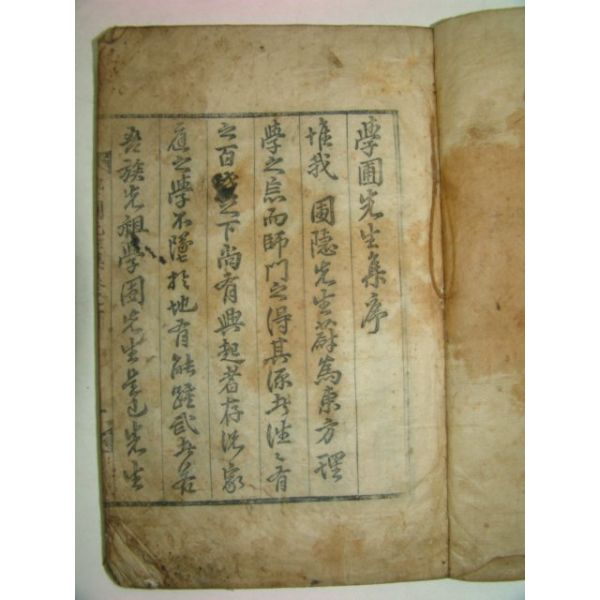 學圃先生集序
惟我 圃隱先生蔚爲東方理
學之宗而師門之得其源者洼〻有
之百之下尙有興起者存況家
庭之學不墜於地有能踵武者若
吾族先祖學圃先生是已先生